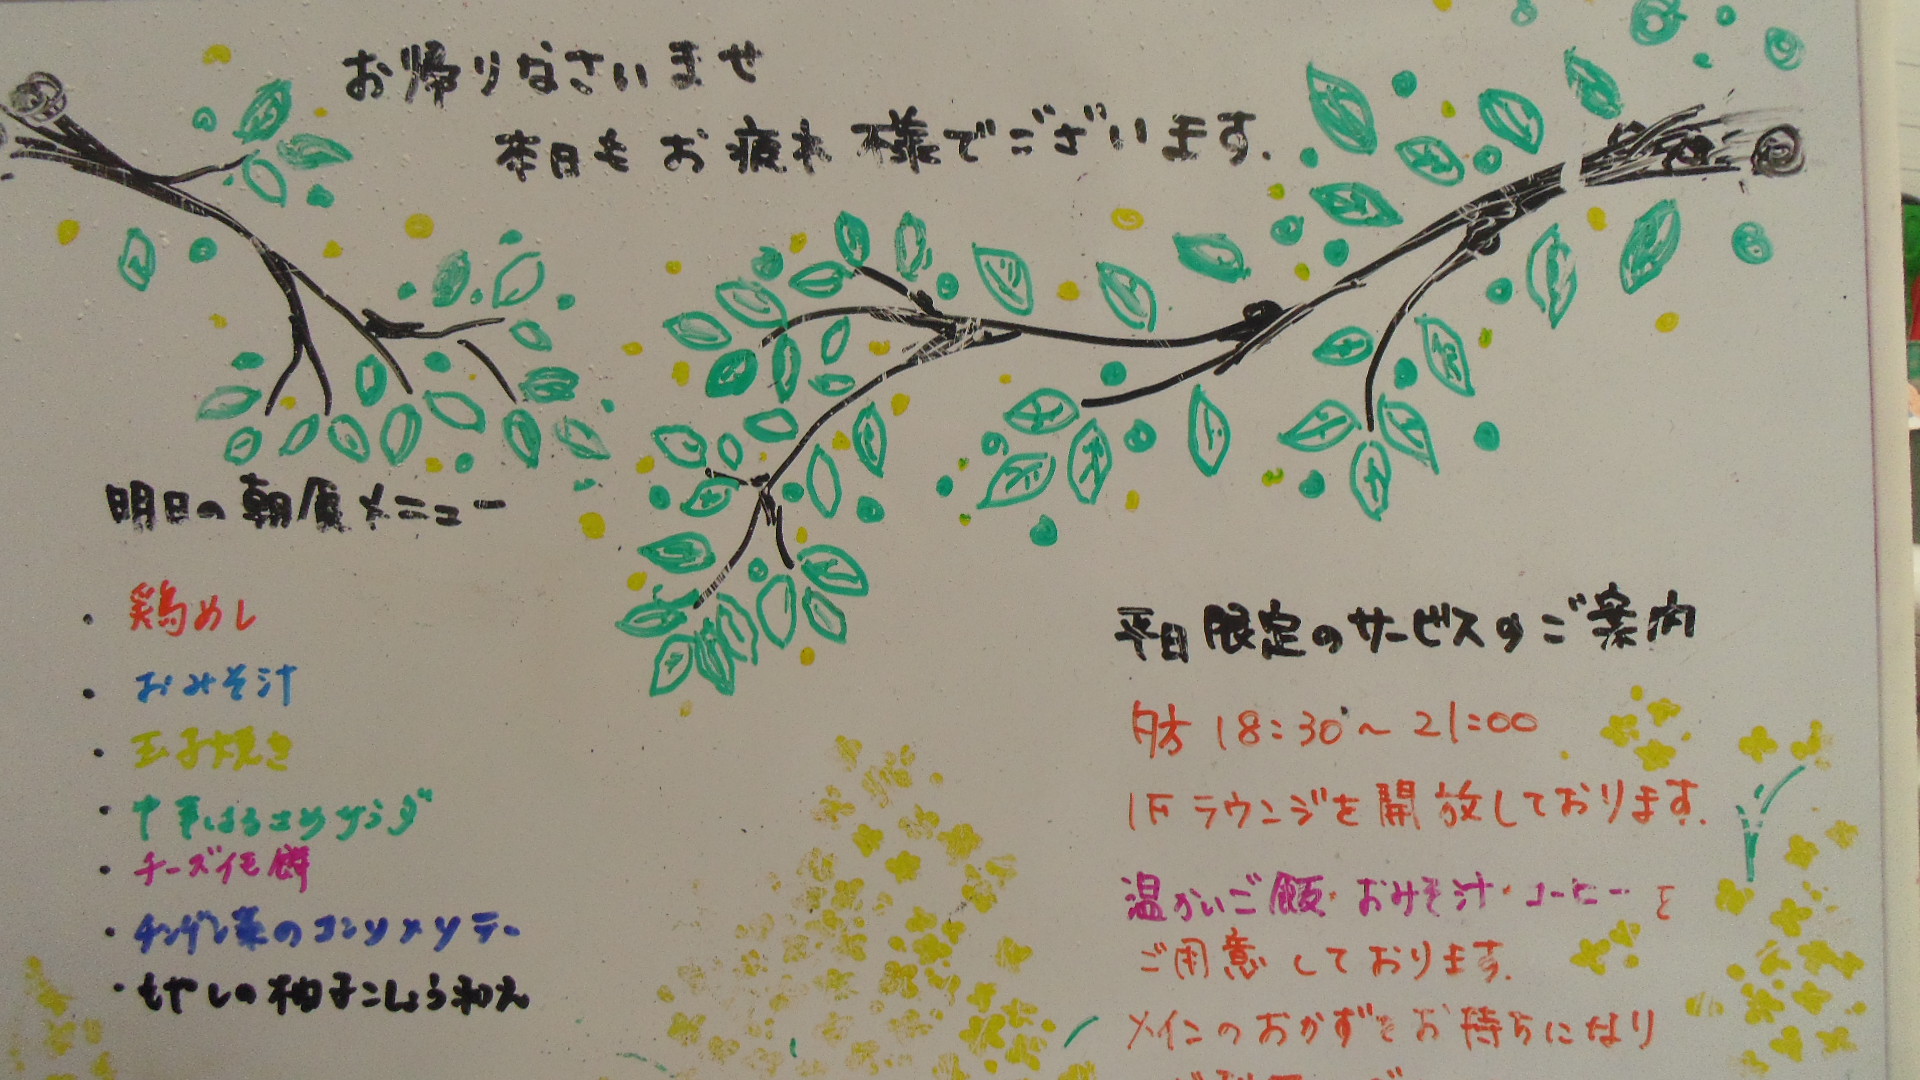 お帰りなさいませ
本日もお疲れ様でございます.
明日の朝食メニュー
・鶏めし
・おみそ汁
・玉子焼き
・中華はるさめサラダ
・チーズイモ餅
・チンゲン菜のコンソメソテー
・もやしの柚子こしょう和え
平日限定のサービスのご案内
夕方 18:30～21:00
1Fラウンジを開放しております.
温かいご飯・おみそ汁・コーヒーを
ご用意しております.
メインのおかずをお持ちになり